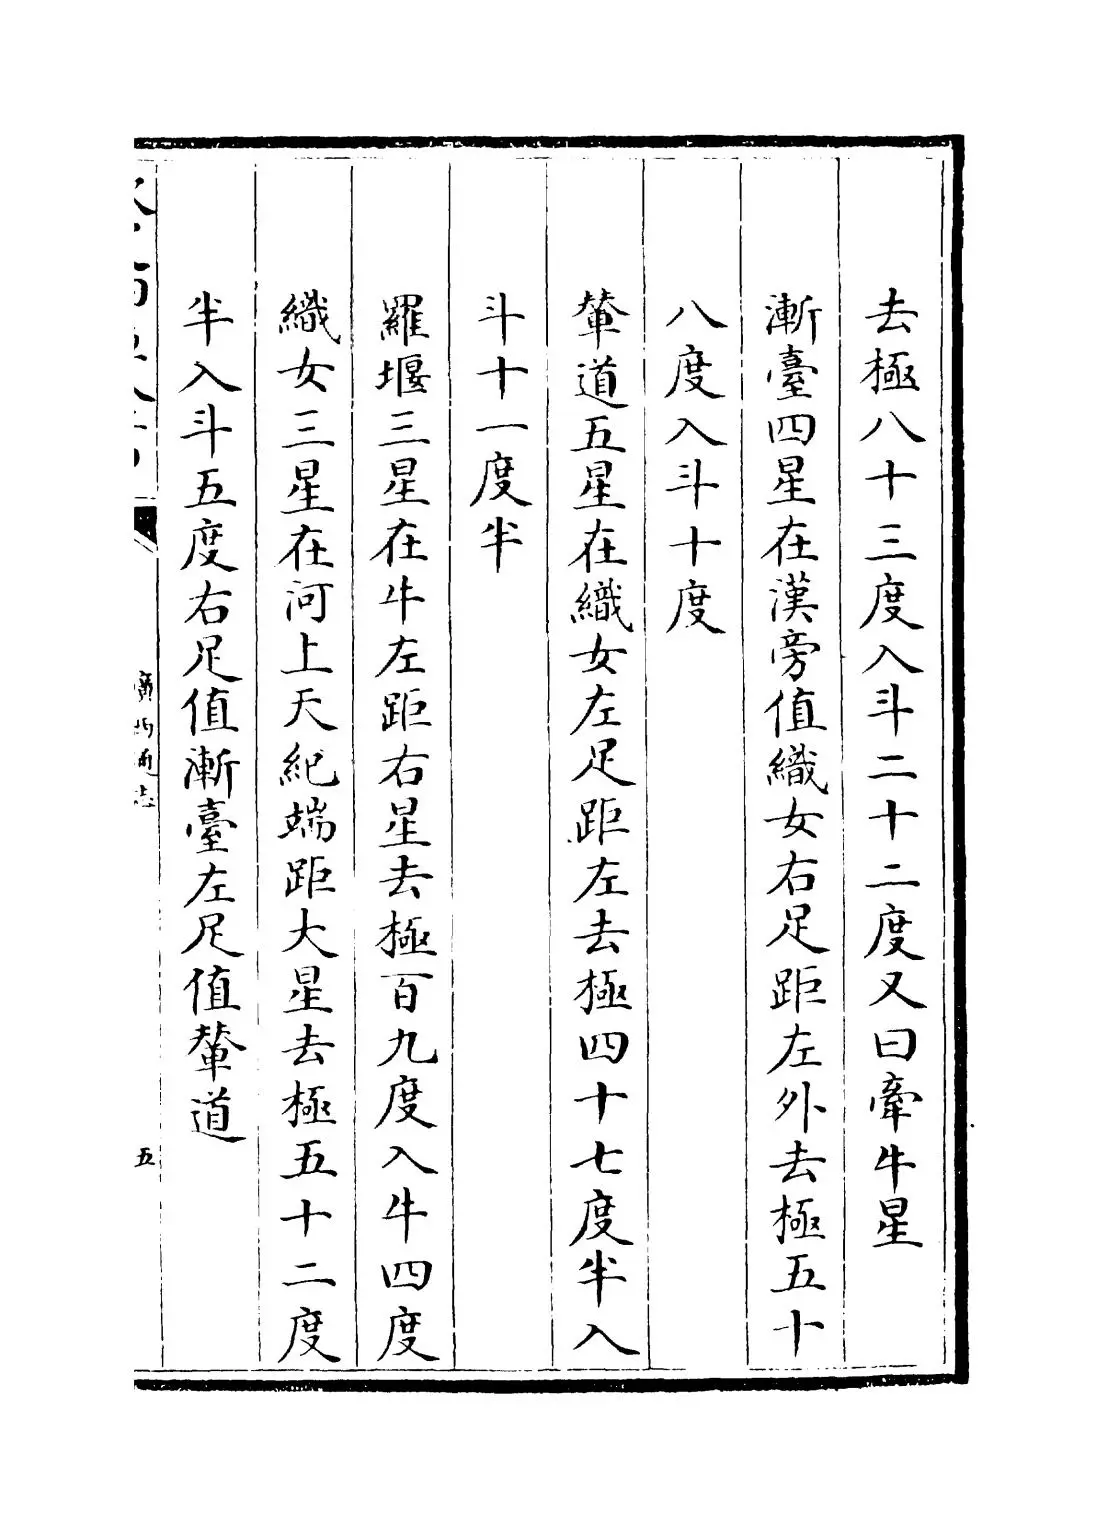 去極八十三度入斗二十二度又曰牽牛星
漸臺四星在漢旁值織女右足距左外去極五十
八度入斗十度
輦道五星在織女左足距左去極四十七度半入
斗十一度半
羅堰三星在牛左距右星去極百九度入牛四度
織女三星在河上天紀端距大星去極五十二度
半入斗五度右足值漸臺左足值輦道
廣西通志
五